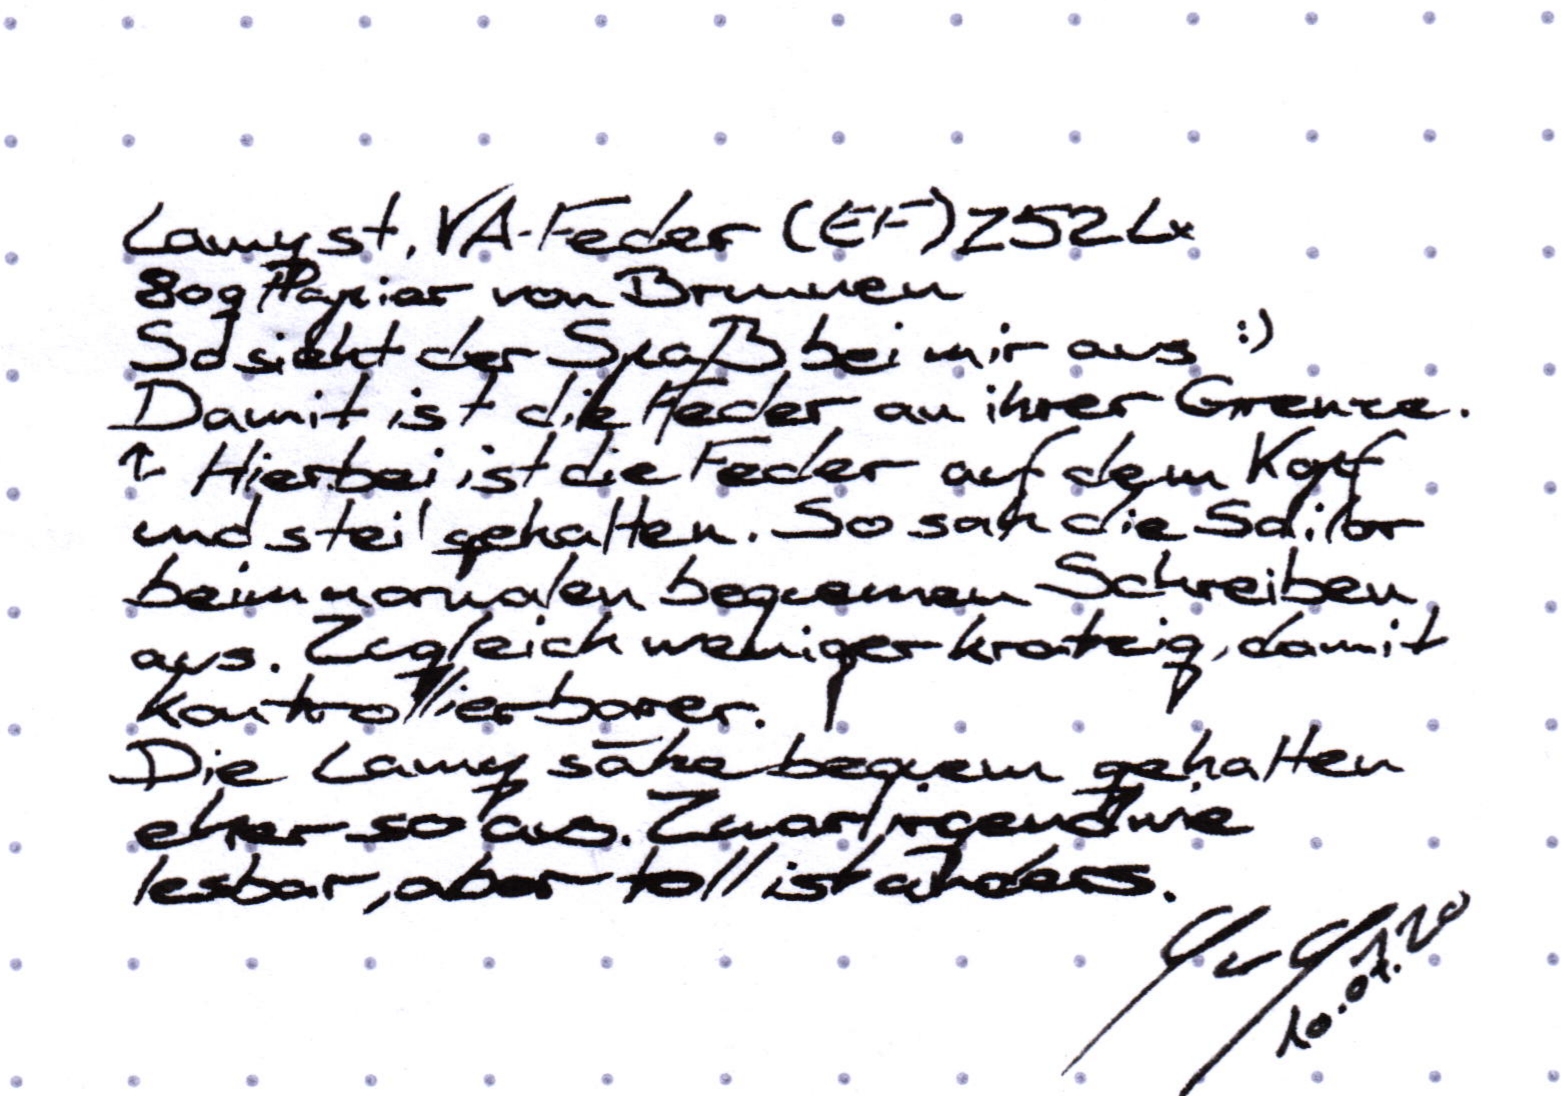 Lamy st, VA-Feder (EF) Z52 Lx
80g Papier von Brunnen
So sieht der Spaß bei mir aus :)
Damit ist die Feder an ihrer Grenze.
↑ Hierbei ist die Feder auf dem Kopf
und steil gehalten. So sah die Sailor
beim normalen bequemen Schreiben
aus. Zugleich weniger kratzig, damit
kontrollierbarer.
Die Lamy sähe bequem gehalten
eher so aus. Zwar irgendwie
lesbar, aber toll ist anders.
10.07.20